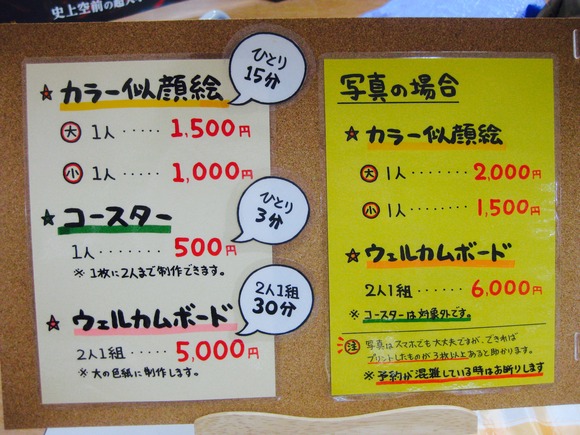 史上空前の超
★カラー似顔絵
ひとり
15分
大 1人‥‥‥1,500円
小 1人‥‥‥1,000円
★コースター
ひとり
3分
1人‥‥‥500円
※1枚に2人まで制作できます。
★ウェルカムボード
2人1組
30分
2人1組‥‥5,000円
※大の色紙に制作します。
写真の場合
★カラー似顔絵
大 1人‥‥‥2,000円
小 1人‥‥‥1,500円
★ウェルカムボード
2人1組‥‥6,000円
※コースターは対象外です。
注 写真はスマホでも大丈夫ですが、できれば
プリントしたものが3枚以上あると助かります。
※予約が混雑している時はお断りします